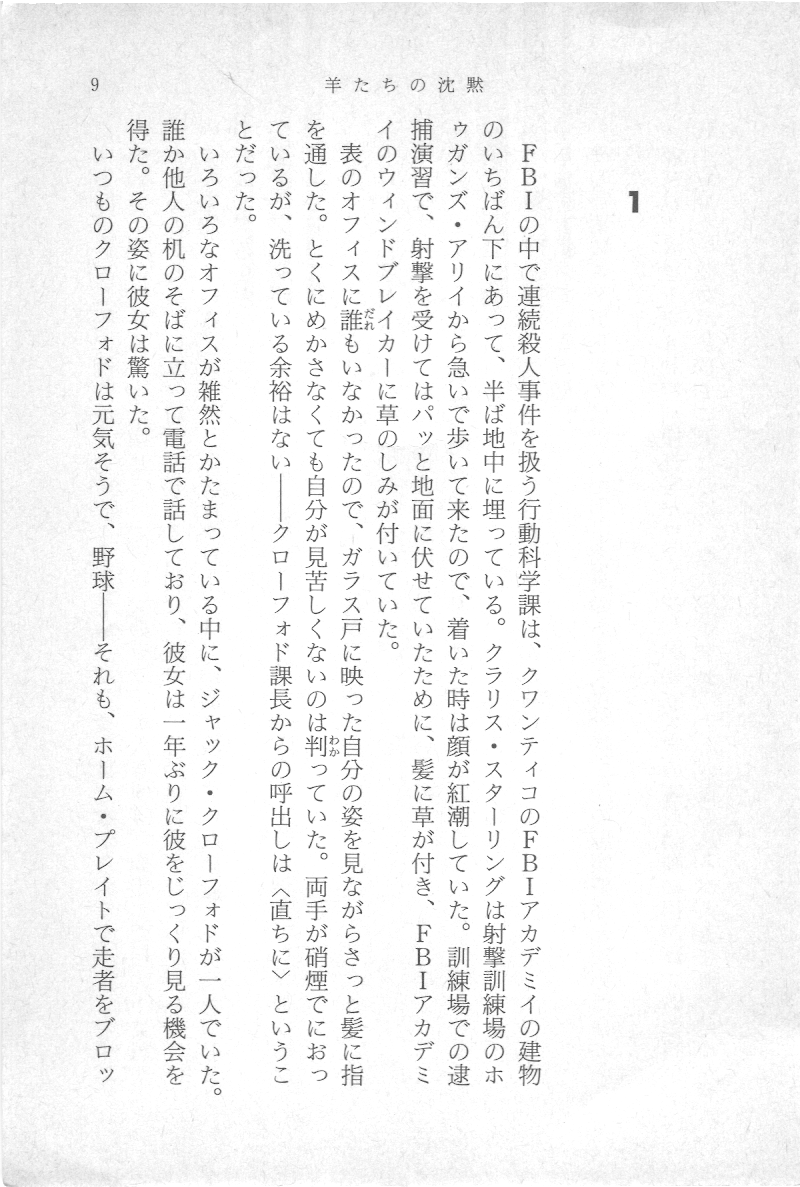 9
羊たちの沈黙
1
FBIの中で連続殺人事件を扱う行動科学課は、クワンティコのFBIアカデミイの建物
のいちばん下にあって、半ば地中に埋っている。クラリス・スターリングは射撃訓練場のホ
ゥガンズ・アリイから急いで歩いて来たので、着いた時は顔が紅潮していた。訓練場での逮
捕演習で、射撃を受けてはパッと地面に伏せていたために、髪に草が付き、FBIアカデミ
イのウィンドブレイカーに草のしみが付いていた。
表のオフィスに誰もいなかったので、ガラス戸に映った自分の姿を見ながらさっと髪に指
を通した。とくにめかさなくても自分が見苦しくないのは判っていた。両手が硝煙でにおっ
ているが、洗っている余裕はない――クローフォド課長からの呼出しは〈直ちに〉というこ
とだった。
いろいろなオフィスが雑然とかたまっている中に、ジャック・クローフォドが一人でいた。
誰か他人の机のそばに立って電話で話しており、彼女は一年ぶりに彼をじっくり見る機会を
得た。その姿に彼女は驚いた。
いつものクローフォドは元気そうで、野球――それも、ホーム・プレイトで走者をブロッ